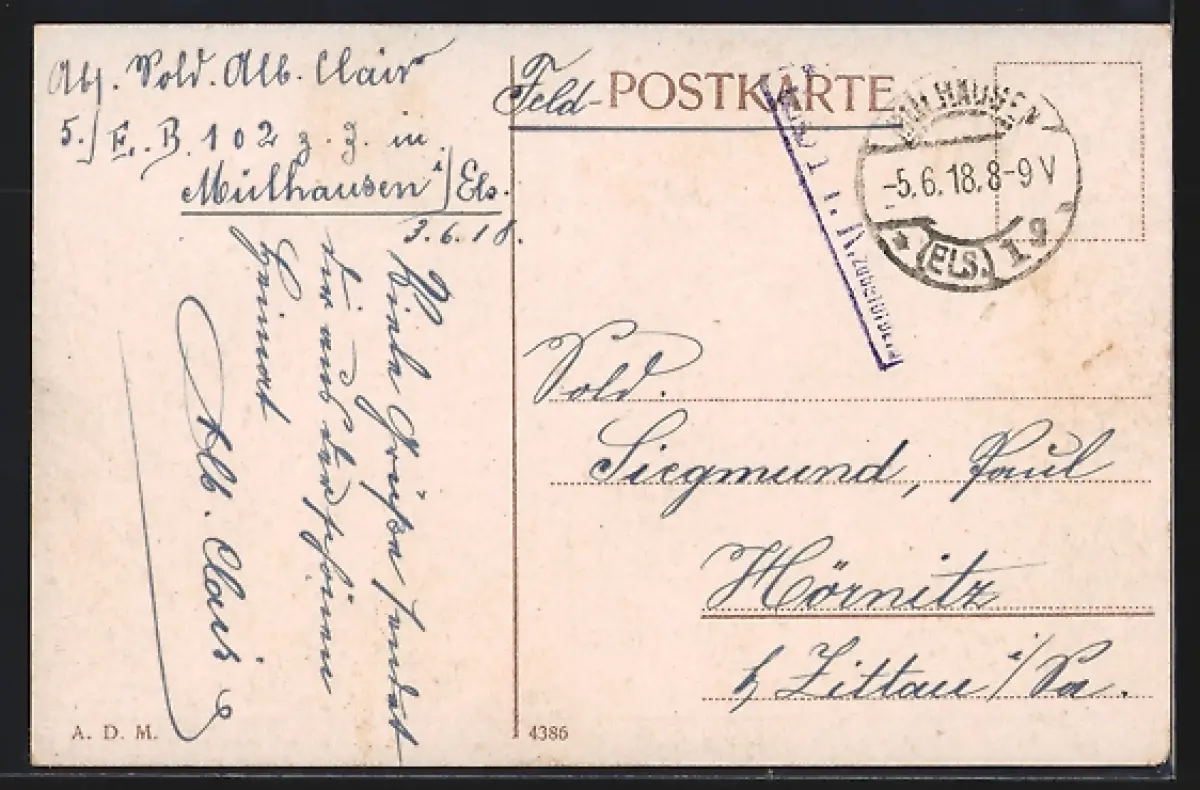 Abs. Sold. Alb. Clair
5./E. B. 102 z. Z. in
Mülhausen i/Els.
3.6.18.
Liebe Grüße sendet
dir aus der schönen
Heimat
Alb. Clair
A. D. M.
Feld-POSTKARTE
MÜLHAUSEN
-5.6.18.8-9 V
* (ELS.) 1 g
Sold.
Siegmund, Paul
Hörnitz
b/ Zittau i/Sa.
4386